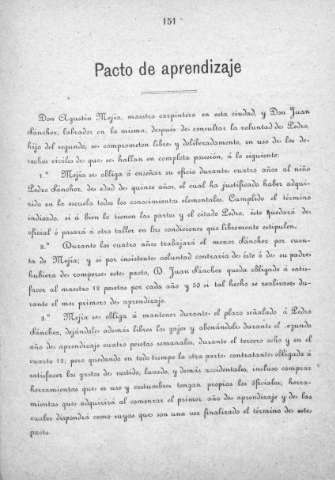 151
Pacto de aprendizaje
Don Agustín Mejía, maestro carpintero en esta ciudad, y Don Juan
Sánchez, labrador en la misma, después de consultar la voluntad de Pedro,
hijo del segundo, se comprometen libre y deliberadamente, en uso de los de-
rechos civiles de que se hallan en completa posesión, á lo siguiente:
1.º Mejía se obliga á enseñar su oficio durante cuatro años al niño
Pedro Sánchez, de edad de quince años, el cual ha justificado haber adqui-
rido en la escuela todos los conocimientos elementales. Cumplido el término
indicado, si á bien lo tienen las partes y el citado Pedro, éste quedará de
oficial ó pasará á otro taller en las condiciones que libremente estipulen.
2.º Durante los cuatro años trabajará el menor Sánchez por cuen-
ta de Mejía; y si por insistente voluntad contraria de éste ó de su padre
hubiera de romperse este pacto, D. Juan Sánchez queda obligado á satis-
facer al maestro 12 pesetas por cada año y 50 si tal hecho se realizase du-
rante el mes primero de aprendizaje.
3.º Mejía se obliga á mantener durante el plazo señalado á Pedro
Sánchez, dejándole además libres los gajes y abonándole durante el segundo
año de aprendizaje cuatro pesetas semanales, durante el tercero ocho y en el
cuarto 12; pero quedando en todo tiempo la otra parte contratante obligada á
satisfacer los gastos de vestido, lavado y demás accidentales, incluso comprar
herramientas que en uso y costumbre tengan propias los oficiales; herra-
mientas que adquirirá al comenzar el primer año de aprendizaje y de las
cuales dispondrá como suyas que son una vez finalizado el término de este
pacto.